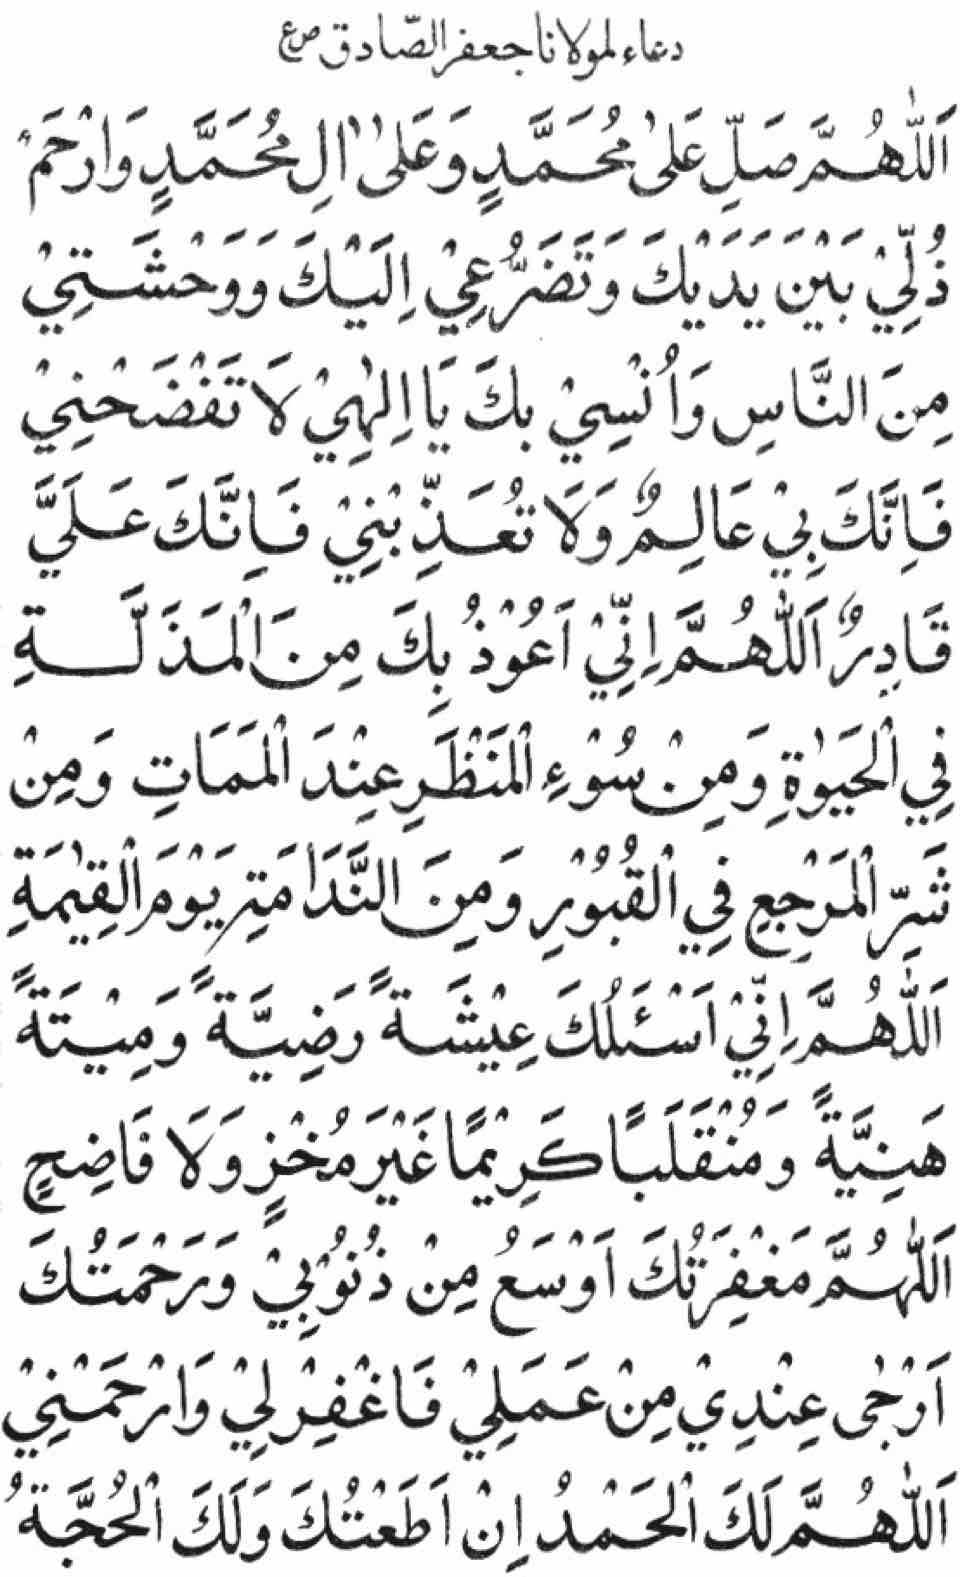 دعاء لمولانا جعفر الصّادق صع
اَللّٰهُمَّ صَلِّ عَلىٰ مُحَمَّدٍ وَعَلىٰ اٰلِ مُحَمَّدٍ وَارْحَمْ
ذُلِّيْ بَيْنَ يَدَيْكَ وَتَضَرُّعِيْ اِلَيْكَ وَوَحْشَتِيْ
مِنَ النَّاسِ وَاُنْسِيْ بِكَ يَا اِلٰهِيْ لَا تَفْضَحْنِيْ
فَاِنَّكَ بِيْ عَالِمٌ وَلَا تُعَذِّبْنِيْ فَاِنَّكَ عَلَيَّ
قَادِرٌ اَللّٰهُمَّ اِنِّيْ اَعُوْذُ بِكَ مِنَ الْمَذَلَّةِ
فِي الْحَيٰوةِ وَمِنْ سُوْءِ الْمَنْظَرِ عِنْدَ الْمَمَاتِ وَمِنْ
شَرِّ الْمَرْجِعِ فِي الْقُبُوْرِ وَمِنَ النَّدَامَةِ يَوْمَ الْقِيٰمَةِ
اَللّٰهُمَّ اِنِّيْ اَسْئَلُكَ عِيْشَةً رَضِيَّةً وَمِيْتَةً
هَنِيَّةً وَمُنْقَلَبًا كَرِيْمًا غَيْرَ مُخْزٍ وَلَا فَاضِحٍ
اَللّٰهُمَّ مَغْفِرَتُكَ اَوْسَعُ مِنْ ذُنُوْبِيْ وَرَحْمَتُكَ
اَرْجٰى عِنْدِيْ مِنْ عَمَلِيْ فَاغْفِرْ لِيْ وَارْحَمْنِيْ
اَللّٰهُمَّ لَكَ الْحَمْدُ اِنْ اَطَعْتُكَ وَلَكَ الْحُجَّةُ